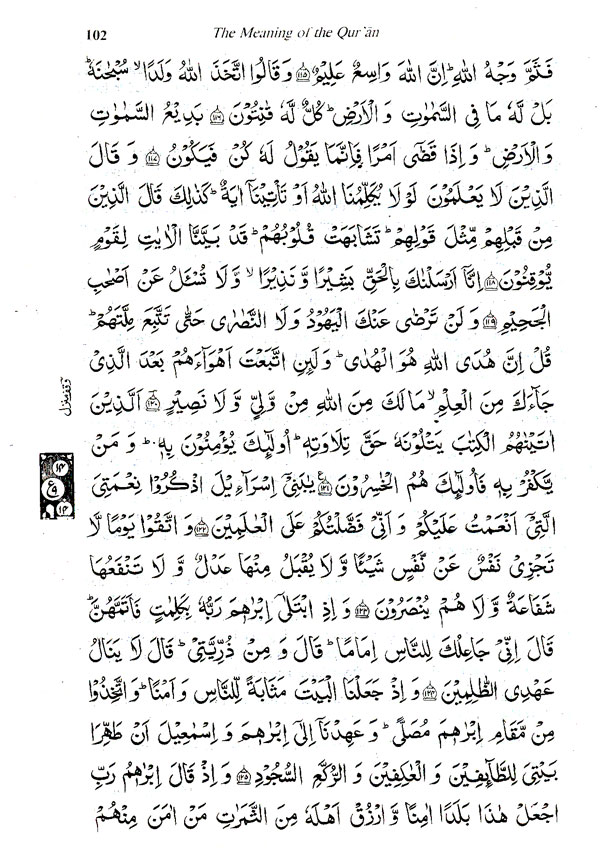 102 The Meaning of the Qur'ān
فَثَمَّ وَجْهُ اللّٰهِ ؕ اِنَّ اللّٰهَ وَاسِعٌ عَلِيْمٌ ﴿۱۱۵﴾ وَ قَالُوا اتَّخَذَ اللّٰهُ وَلَدًا ۙ سُبْحٰنَهٗ ؕ
بَلْ لَّهٗ مَا فِى السَّمٰوٰتِ وَ الْاَرْضِ ؕ كُلٌّ لَّهٗ قٰنِتُوْنَ ﴿۱۱۶﴾ بَدِيْعُ السَّمٰوٰتِ
وَ الْاَرْضِ ؕ وَ اِذَا قَضٰٓى اَمْرًا فَاِنَّمَا يَقُوْلُ لَهٗ كُنْ فَيَكُوْنُ ﴿۱۱۷﴾ وَ قَالَ
الَّذِيْنَ لَا يَعْلَمُوْنَ لَوْ لَا يُكَلِّمُنَا اللّٰهُ اَوْ تَاْتِيْنَاۤ اٰيَةٌ ؕ كَذٰلِكَ قَالَ الَّذِيْنَ
مِنْ قَبْلِهِمْ مِّثْلَ قَوْلِهِمْ ؕ تَشَابَهَتْ قُلُوْبُهُمْ ؕ قَدْ بَيَّنَّا الْاٰيٰتِ لِقَوْمٍ
يُّوْقِنُوْنَ ﴿۱۱۸﴾ اِنَّاۤ اَرْسَلْنٰكَ بِالْحَقِّ بَشِيْرًا وَّ نَذِيْرًا ۙ وَّ لَا تُسْـَٔلُ عَنْ اَصْحٰبِ
الْجَحِيْمِ ﴿۱۱۹﴾ وَ لَنْ تَرْضٰى عَنْكَ الْيَهُوْدُ وَ لَا النَّصٰرٰى حَتّٰى تَتَّبِعَ مِلَّتَهُمْ ؕ
قُلْ اِنَّ هُدَى اللّٰهِ هُوَ الْهُدٰى ؕ وَ لَئِنِ اتَّبَعْتَ اَهْوَآءَهُمْ بَعْدَ الَّذِىْ
جَآءَكَ مِنَ الْعِلْمِ ۙ مَا لَكَ مِنَ اللّٰهِ مِنْ وَّلِىٍّ وَّ لَا نَصِيْرٍ ﴿۱۲۰﴾ اَلَّذِيْنَ
اٰتَيْنٰهُمُ الْكِتٰبَ يَتْلُوْنَهٗ حَقَّ تِلَاوَتِهٖ ؕ اُولٰٓئِكَ يُؤْمِنُوْنَ بِهٖ ؕ وَ مَنْ
يَّكْفُرْ بِهٖ فَاُولٰٓئِكَ هُمُ الْخٰسِرُوْنَ ﴿۱۲۱﴾ يٰبَنِىْۤ اِسْرَآءِيْلَ اذْكُرُوْا نِعْمَتِىَ
الَّتِىْۤ اَنْعَمْتُ عَلَيْكُمْ وَ اَنِّىْ فَضَّلْتُكُمْ عَلَى الْعٰلَمِيْنَ ﴿۱۲۲﴾ وَ اتَّقُوْا يَوْمًا لَّا
تَجْزِىْ نَفْسٌ عَنْ نَّفْسٍ شَيْـًٔا وَّ لَا يُقْبَلُ مِنْهَا عَدْلٌ وَّ لَا تَنْفَعُهَا
شَفَاعَةٌ وَّ لَا هُمْ يُنْصَرُوْنَ ﴿۱۲۳﴾ وَ اِذِ ابْتَلٰٓى اِبْرٰهٖمَ رَبُّهٗ بِكَلِمٰتٍ فَاَتَمَّهُنَّ ؕ
قَالَ اِنِّىْ جَاعِلُكَ لِلنَّاسِ اِمَامًا ؕ قَالَ وَ مِنْ ذُرِّيَّتِىْ ؕ قَالَ لَا يَنَالُ
عَهْدِى الظّٰلِمِيْنَ ﴿۱۲۴﴾ وَ اِذْ جَعَلْنَا الْبَيْتَ مَثَابَةً لِّلنَّاسِ وَ اَمْنًا ؕ وَ اتَّخِذُوْا
مِنْ مَّقَامِ اِبْرٰهٖمَ مُصَلًّى ؕ وَ عَهِدْنَاۤ اِلٰٓى اِبْرٰهٖمَ وَ اِسْمٰعِيْلَ اَنْ طَهِّرَا
بَيْتِىَ لِلطَّآئِفِيْنَ وَ الْعٰكِفِيْنَ وَ الرُّكَّعِ السُّجُوْدِ ﴿۱۲۵﴾ وَ اِذْ قَالَ اِبْرٰهٖمُ رَبِّ
اجْعَلْ هٰذَا بَلَدًا اٰمِنًا وَّ ارْزُقْ اَهْلَهٗ مِنَ الثَّمَرٰتِ مَنْ اٰمَنَ مِنْهُمْ